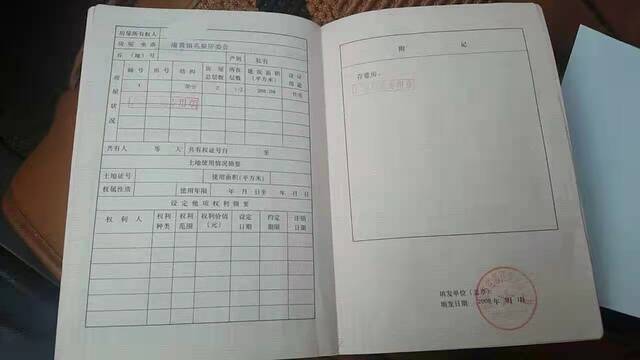 房屋所有权人
房屋坐落
丘（地）号 产别 私有
房屋状况
幢号 房号 结构 房屋总层数 所在层数 建筑面积（平方米） 设计用途
1 2 1-2
共有人 等 人 共有权证号自 至
土地使用情况摘要
土地证号 使用面积（平方米）
权属性质 使用年限 年 月 日至 年 月 日
设定他项权利摘要
权利人 权利种类 权利范围 权利价值（元） 设定日期 约定期限 注销日期
附 记
填发单位（盖章）
填发日期： 2008 年 月 日